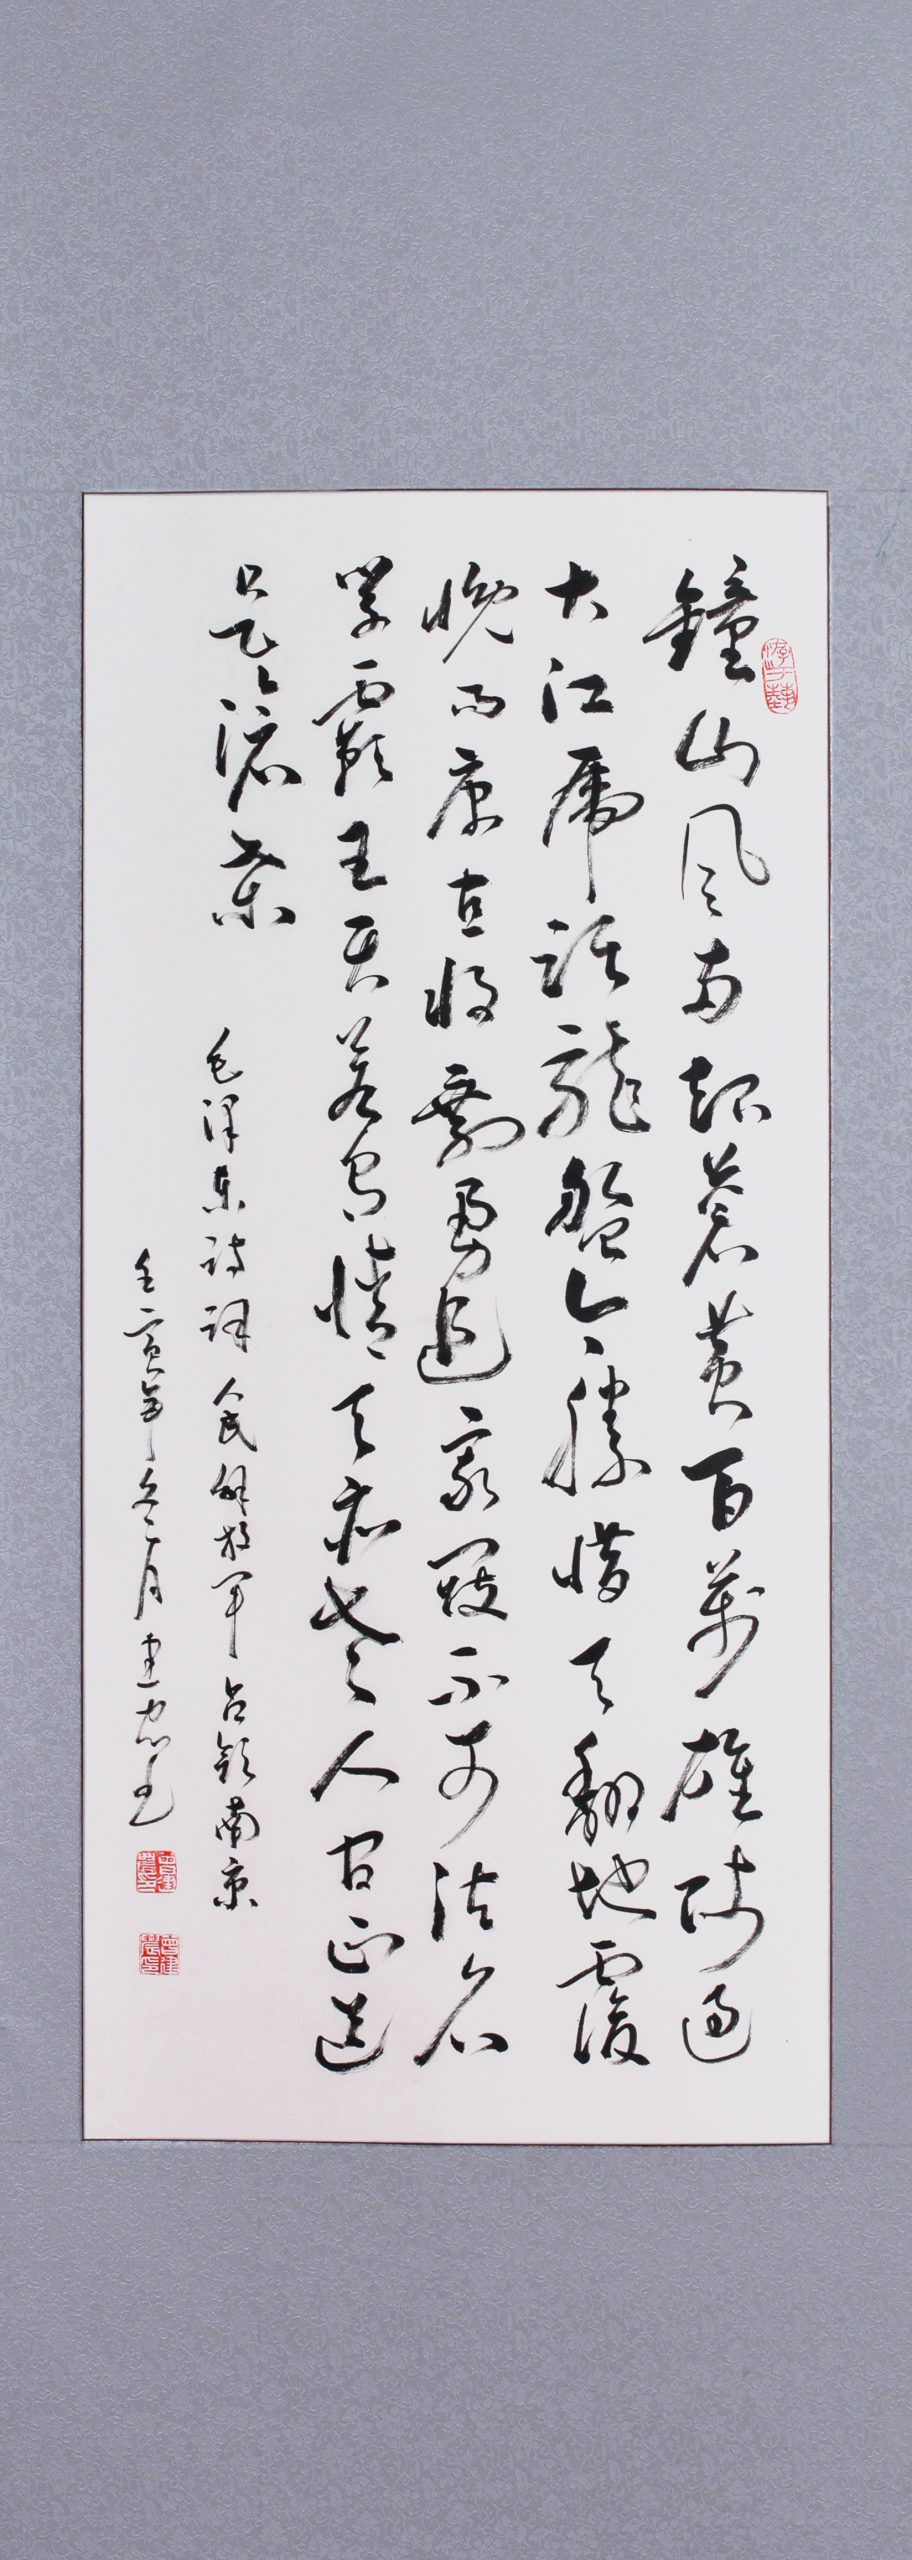 鐘山風雨起蒼黄百萬雄師過
大江虎踞龍盤今勝昔天翻地覆
慨而慷宜將剩勇追窮寇不可沽名
學霸王天若有情天亦老人间正道
是滄桑
毛泽东诗词人民解放军占领南京
壬寅年冬二月建忠书